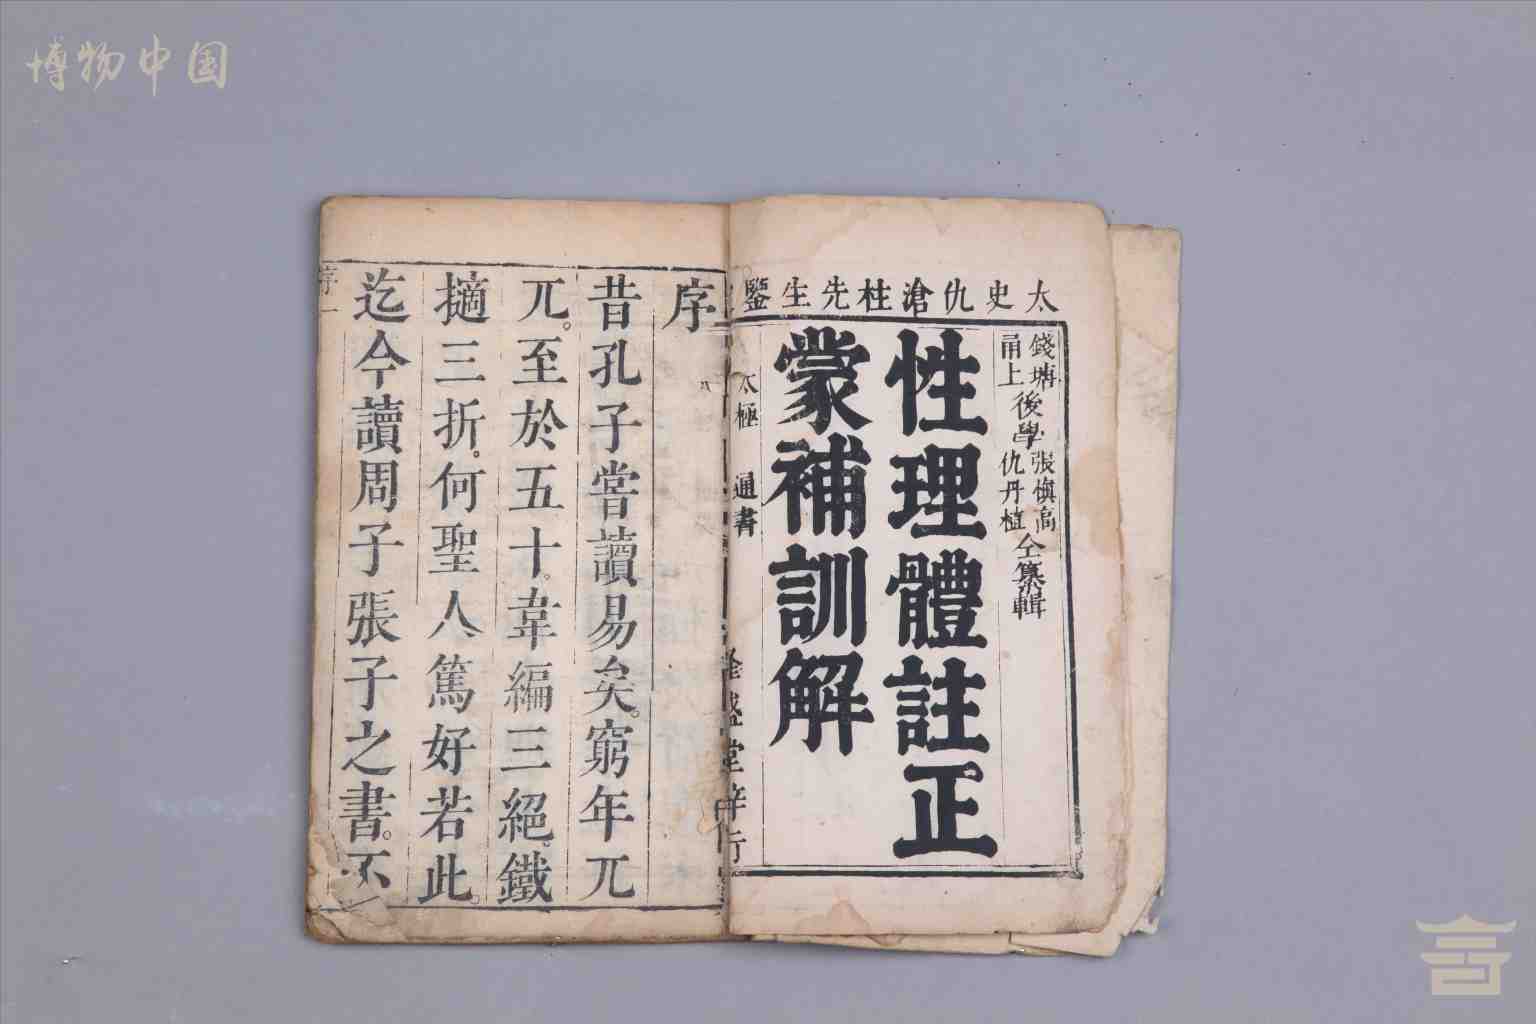 博物中国
太史仇滄柱先生鑒
錢塘張慎高
甬上後學仇丹植
仝纂輯
性理體註正
蒙補訓解
太極 通書
堂梓行
序
昔孔子嘗讀易矣。窮年兀
兀。至於五十。韋編三絕。鐵
擿三折。何聖人篤好若此。
迄今讀周子張子之書。不
序一